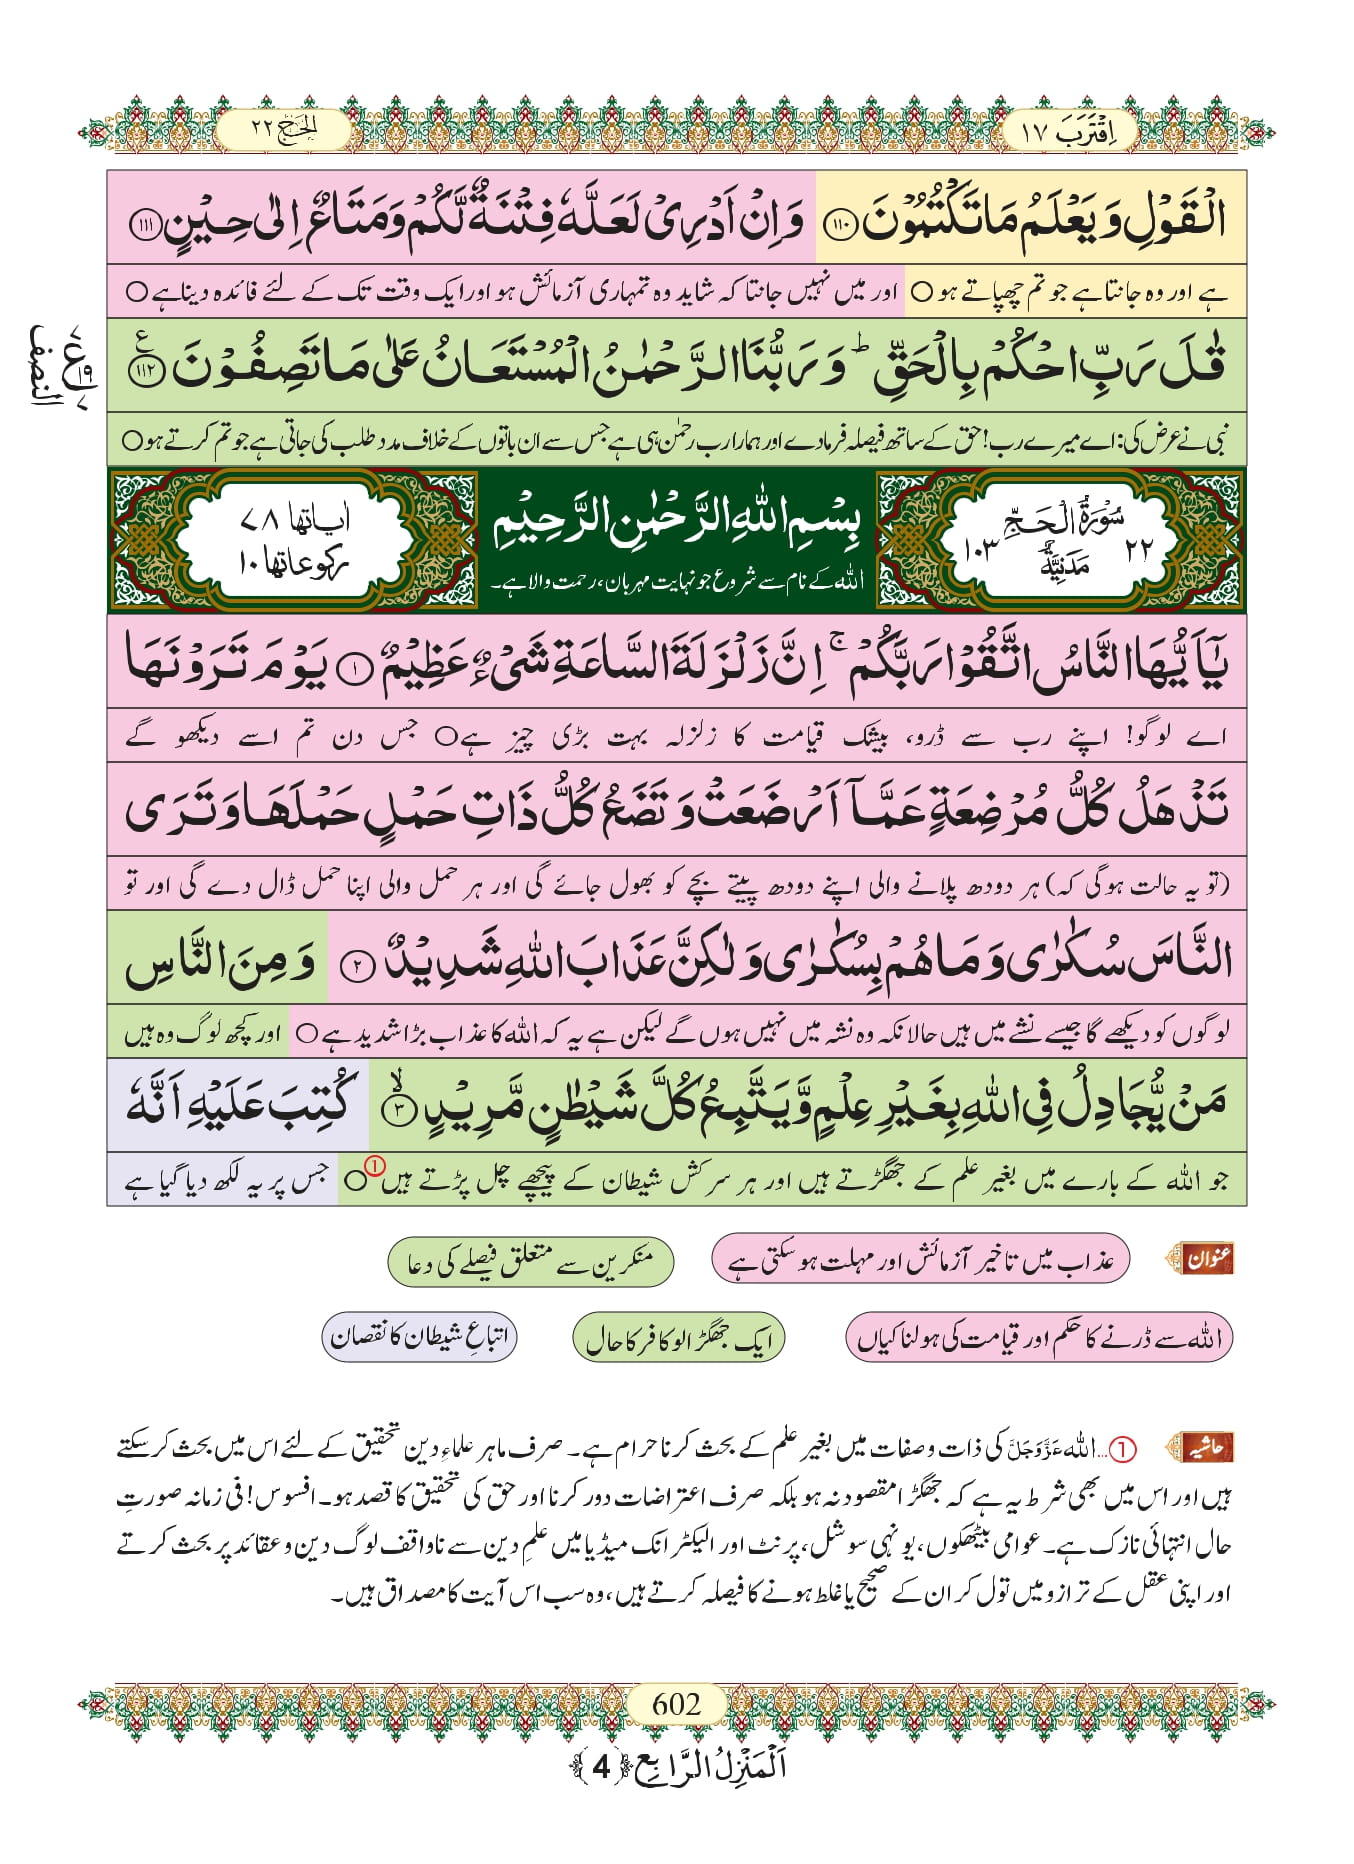 اِقْتَرَبَ ١٧
الحَجّ ٢٢
الْقَوْلِ وَيَعْلَمُ مَا تَكْتُمُوْنَ ﴿۱۱۰﴾ وَاِنْ اَدْرِیْ لَعَلَّهٗ فِتْنَةٌ لَّكُمْ وَمَتَاعٌ اِلٰى حِيْنٍ ﴿۱۱۱﴾
ہے اور وہ جانتا ہے جو تم چھپاتے ہو ○ اور میں نہیں جانتا کہ شاید وہ تمہاری آزمائش ہو اور ایک وقت تک کے لئے فائدہ دینا ہے ○
قٰلَ رَبِّ احْكُمْ بِالْحَقِّ ؕ وَرَبُّنَا الرَّحْمٰنُ الْمُسْتَعَانُ عَلٰى مَا تَصِفُوْنَ ﴿۱۱۲﴾ ع
النصف
نبی نے عرض کی: اے میرے رب! حق کے ساتھ فیصلہ فرمادے اور ہمارا رب رحمٰن ہی ہے جس سے ان باتوں کے خلاف مدد طلب کی جاتی ہے جو تم کرتے ہو ○
سُوْرَةُ الْحَجِّ
٢٢ مَدَنِيَّةٌ ١٠٣
بِسْمِ اللهِ الرَّحْمٰنِ الرَّحِيْمِ
اللہ کے نام سے شروع جو نہایت مہربان، رحمت والا ہے۔
اٰیاتها ٧٨
رکوعاتها ١٠
يٰۤاَيُّهَا النَّاسُ اتَّقُوْا رَبَّكُمْ ۚ اِنَّ زَلْزَلَةَ السَّاعَةِ شَیْءٌ عَظِيْمٌ ﴿۱﴾ يَوْمَ تَرَوْنَهَا
اے لوگو! اپنے رب سے ڈرو، بیشک قیامت کا زلزلہ بہت بڑی چیز ہے ○ جس دن تم اسے دیکھو گے
تَذْهَلُ كُلُّ مُرْضِعَةٍ عَمَّاۤ اَرْضَعَتْ وَتَضَعُ كُلُّ ذَاتِ حَمْلٍ حَمْلَهَا وَتَرَى
(تو یہ حالت ہوگی کہ) ہر دودھ پلانے والی اپنے دودھ پیتے بچے کو بھول جائے گی اور ہر حمل والی اپنا حمل ڈال دے گی اور تو
النَّاسَ سُكٰرٰى وَمَا هُمْ بِسُكٰرٰى وَلٰكِنَّ عَذَابَ اللهِ شَدِيْدٌ ﴿۲﴾ وَمِنَ النَّاسِ
لوگوں کو دیکھے گا جیسے نشے میں ہیں حالانکہ وہ نشہ میں نہیں ہوں گے لیکن ہے یہ کہ اللہ کا عذاب بڑا شدید ہے ○ اور کچھ لوگ وہ ہیں
مَنْ يُّجَادِلُ فِی اللهِ بِغَيْرِ عِلْمٍ وَّيَتَّبِعُ كُلَّ شَيْطٰنٍ مَّرِيْدٍ ۙ﴿۳﴾ كُتِبَ عَلَيْهِ اَنَّهٗ
جو اللہ کے بارے میں بغیر علم کے جھگڑتے ہیں اور ہر سرکش شیطان کے پیچھے چل پڑتے ہیں ①○ جس پر یہ لکھ دیا گیا ہے
عنوان عذاب میں تاخیر آزمائش اور مہلت ہوسکتی ہے منکرین سے متعلق فیصلے کی دعا
اللہ سے ڈرنے کا حکم اور قیامت کی ہولناکیاں ایک جھگڑالو کافر کا حال اتباعِ شیطان کا نقصان
حاشیہ ①...اللہ عَزَّوَجَلَّ کی ذات وصفات میں بغیر علم کے بحث کرنا حرام ہے۔ صرف ماہر علماءِ دین تحقیق کے لئے اس میں بحث کرسکتے
ہیں اور اس میں بھی شرط یہ ہے کہ جھگڑا مقصود نہ ہو بلکہ صرف اعتراضات دور کرنا اور حق کی تحقیق کا قصد ہو۔ افسوس! فی زمانہ صورتِ
حال انتہائی نازک ہے۔ عوامی بیٹھکوں، یونہی سوشل، پرنٹ اور الیکٹرانک میڈیا میں علمِ دین سے ناواقف لوگ دین وعقائد پر بحث کرتے
اور اپنی عقل کے ترازو میں تول کر ان کے صحیح یا غلط ہونے کا فیصلہ کرتے ہیں، وہ سب اس آیت کا مصداق ہیں۔
602
اَلْمَنْزِلُ الرَّابِع ﴿4﴾